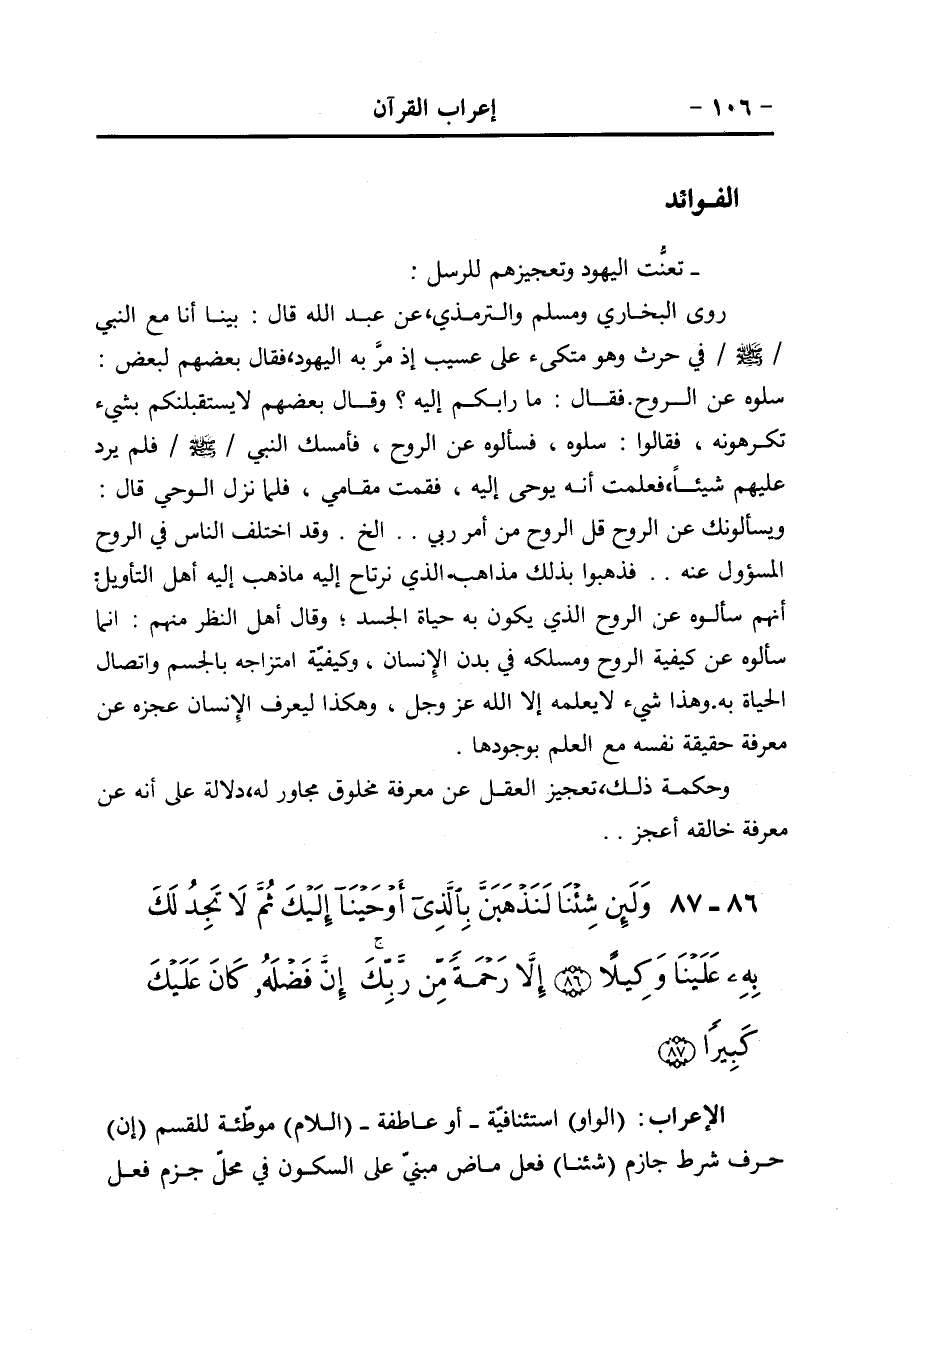 - ١٠٦ - إعراب القرآن
الفـوائد
ـ تعنُّت اليهود وتعجيزهم للرسل :
روى البخـاري ومسلم والـترمـذي،عن عبـد الله قال : بينـا أنا مع النبي
/ ﷺ / في حرث وهو متكىء على عسيب إذ مرَّ به اليهود،فقال بعضهم لبعض :
سلوه عن الـروح.فقـال : ما رابكـم إليه ؟ وقـال بعضهم لايستقبلنكم بشيء
تكـرهونه ، فقالوا : سلوه ، فسألوه عن الروح ، فأمسك النبي / ﷺ / فلم يرد
عليهم شيئـاً،فعلمت أنـه يوحى إليه ، فقمت مقـامي ، فلما نزل الـوحي قال :
ويسألونك عن الروح قل الروح من أمر ربي . . الخ . وقد اختلف الناس في الروح
المسؤول عنه . . فذهبوا بذلك مذاهب.الذي نرتاح إليه ماذهب إليه أهل التأويل:
أنهم سألـوه عن الروح الذي يكون به حياة الجسد ؛ وقال أهل النظر منهم : انما
سألوه عن كيفية الروح ومسلكه في بدن الإنسان ، وكيفيّة امتزاجه بالجسم واتصال
الحياة به.وهذا شيء لايعلمه إلا الله عز وجل ، وهكذا ليعرف الإنسان عجزه عن
معرفة حقيقة نفسه مع العلم بوجودها .
وحكمـة ذلـك،تعجيز العقـل عن معرفة مخلوق مجاور له،دلالة على أنه عن
معرفة خالقه أعجز . .
٨٦ - ٨٧ وَلَئِن شِئْنَا لَنَذْهَبَنَّ بِٱلَّذِىٓ أَوْحَيْنَآ إِلَيْكَ ثُمَّ لَا تَجِدُ لَكَ
بِهِۦ عَلَيْنَا وَكِيلًا ﴿٨٦﴾ إِلَّا رَحْمَةً مِّن رَّبِّكَ ۚ إِنَّ فَضْلَهُۥ كَانَ عَلَيْكَ
كَبِيرًا ﴿٨٧﴾
الإعراب : (الواو) استئنافيّة ـ أو عـاطفة ـ (الـلام) موطّئـة للقسم (إن)
حـرف شرط جازم (شئنـا) فعل مـاض مبنيّ على السكـون في محلّ جـزم فعـل